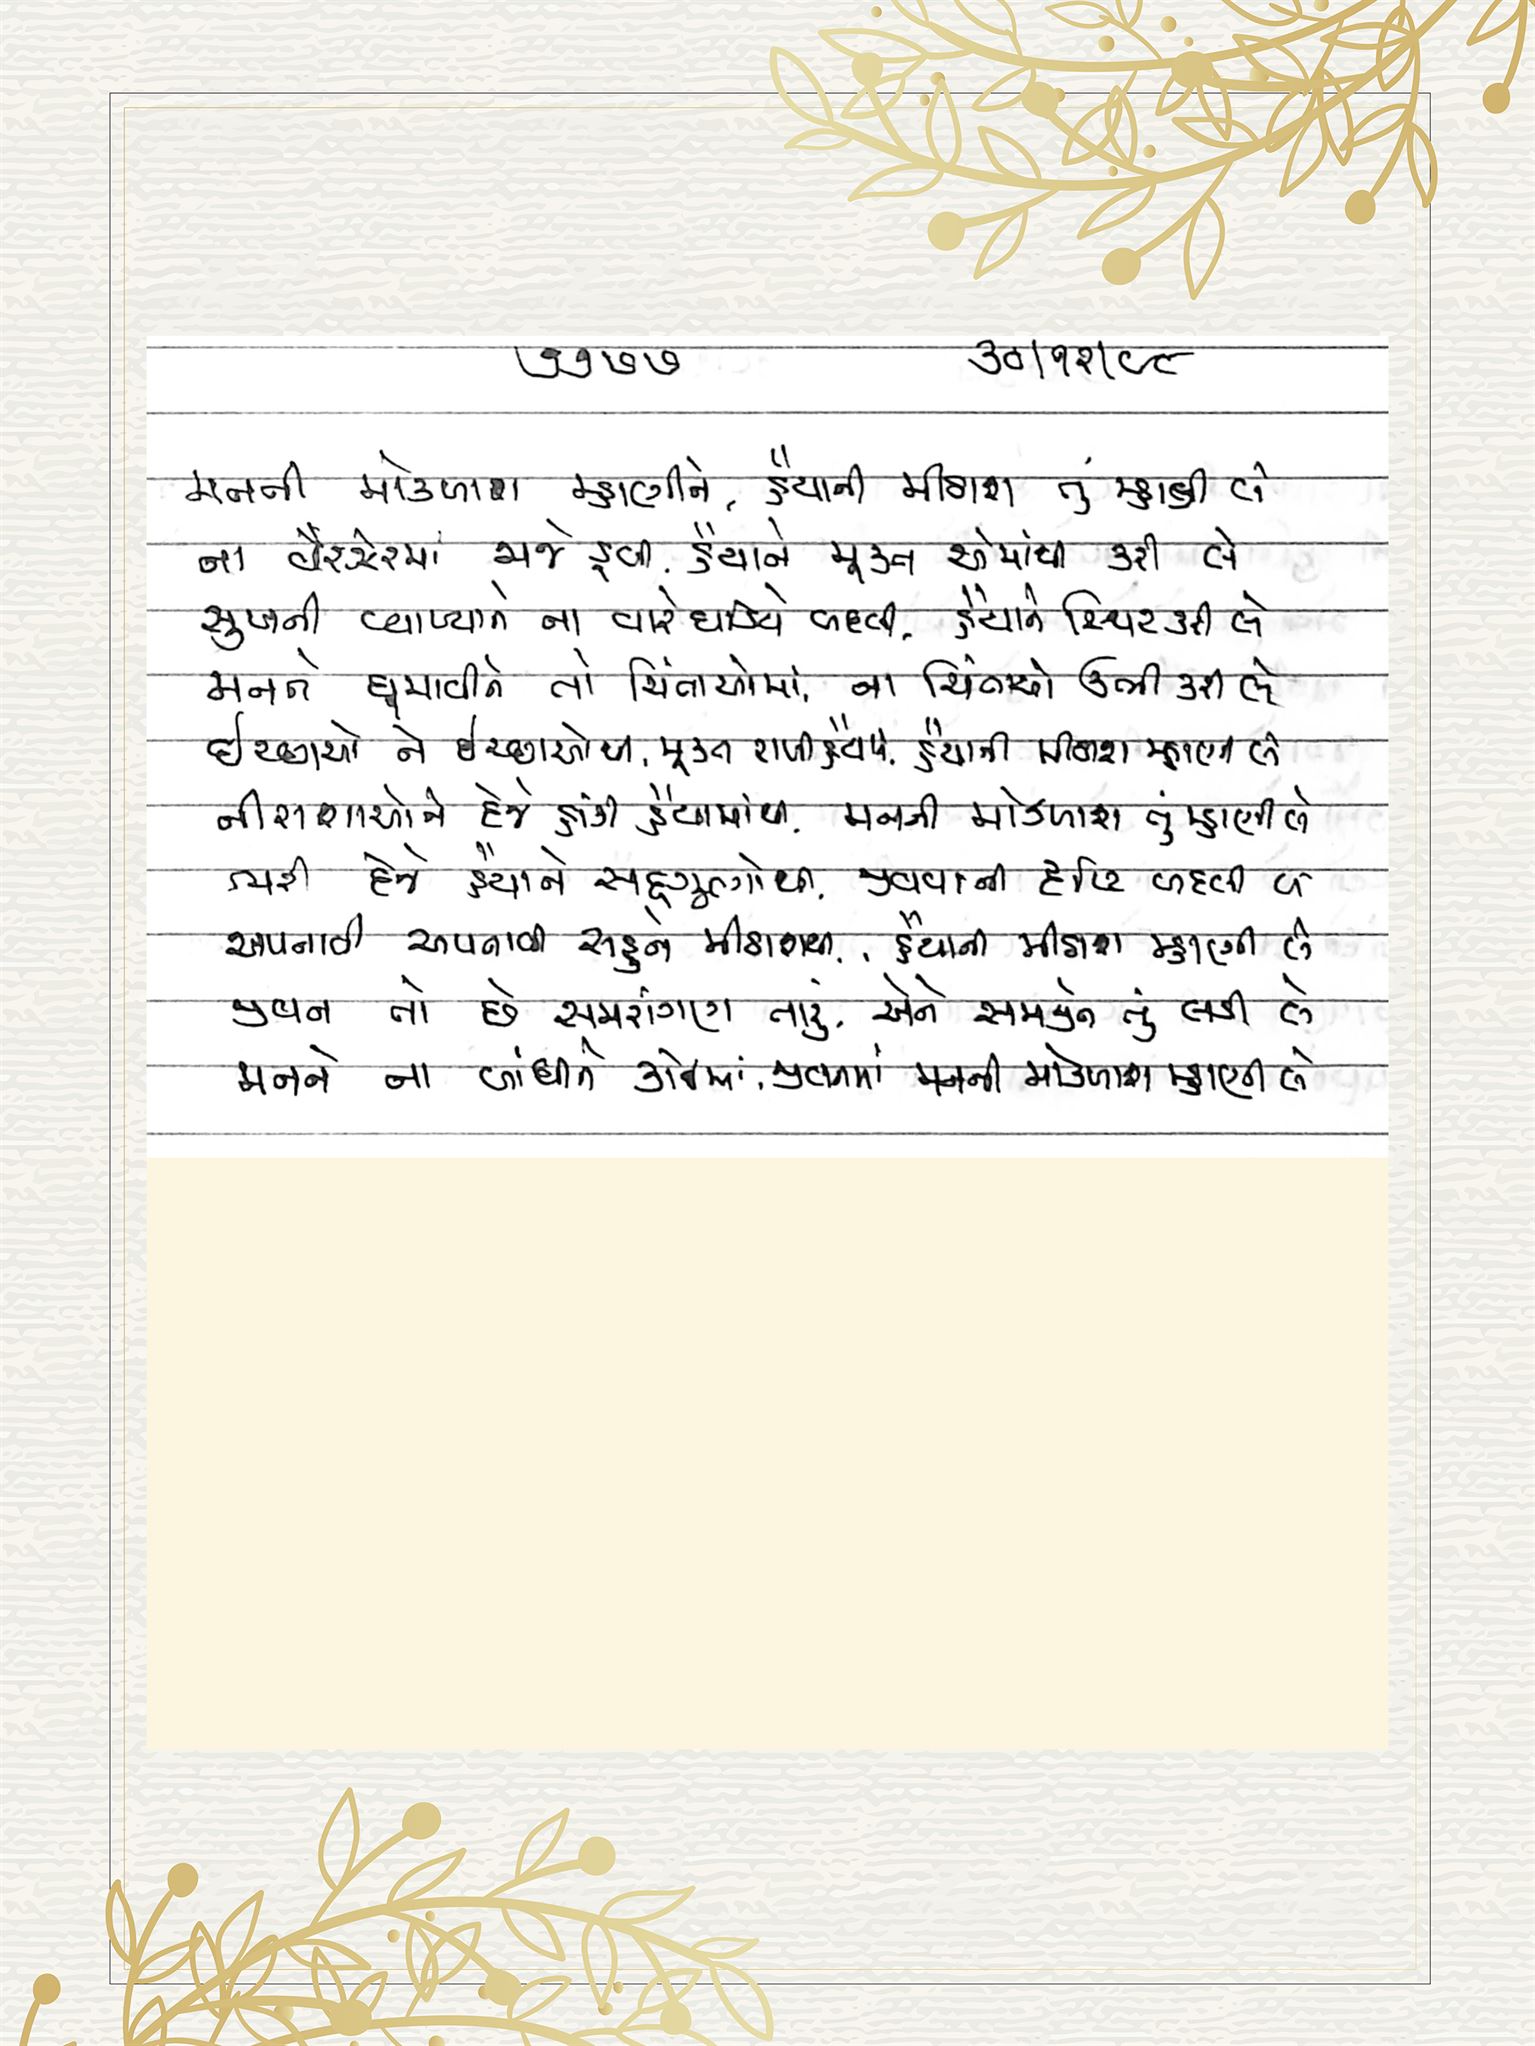 ૭૭૭૭ ૩૦/૧૨/૯૮
મનની મોકળાશ મ્હાણીને, હૈયાની મીઠાશ તું મ્હાણી લે
ના વૈરઝેરમાં જાજે ડૂબી, હૈયાને મૂક્ત એમાંથી કરી લે
સુખની વ્યાખ્યાને ના વારેઘડિયે બદલી, હૈયાને સ્થિર કરી લે
મનને ઘૂમાવીને તો ચિંતાઓમાં, ના ચિંતાઓ ઊભી કરી લે
ઈચ્છાઓ ને ઈચ્છાઓથી, મૂક્ત રાખી હૈયાને, હૈયાની મીઠાશ મ્હાણી લે
નીરાશાઓને દેજે હાંકી હૈયામાંથી, મનની મોકળાશ તું મ્હાણી લે
ભરી દેજે હૈયાને સદ્ગુણોથી, જીવવાની દૃષ્ટિ બદલી લે
અપનાવી અપનાવી સહુને મીઠાશથી, હૈયાની મીઠાશ મ્હાણી લે
જીવન તો છે સમરાંગણ તારું, એને સમજીને તું લડી લે
મનને ના બાંધીને કોઈમાં, જીવનમાં મનની મોકળાશ મ્હાણી લે